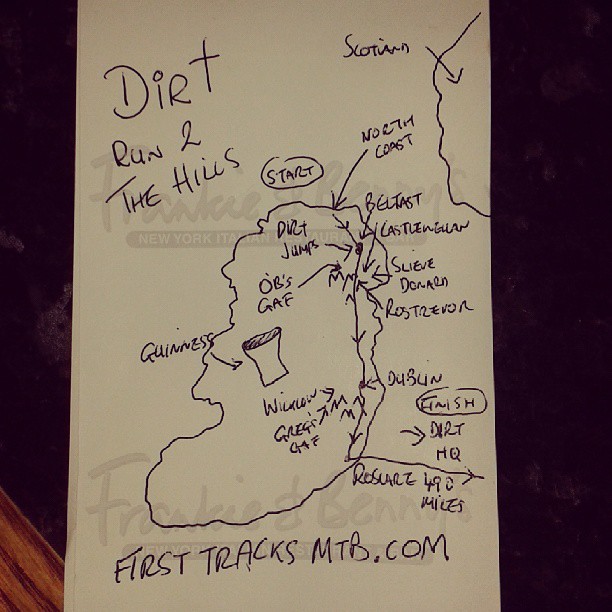 Dirt
Run 2
The Hills
Scotland
START
North
Coast
Belfast
Castlewellan
Dirt
Jumps
Slieve
Donard
OB's
Gaf
Rostrevor
Guinness
Dublin
Wicklow
Greg's
Gaf
Finish
Dirt
HQ
Roslare
490
Miles
First Tracks MTB.com
Frankie & Benny's
NEW YORK ITALIAN RESTAURANT & BAR
Frankie & Benny's